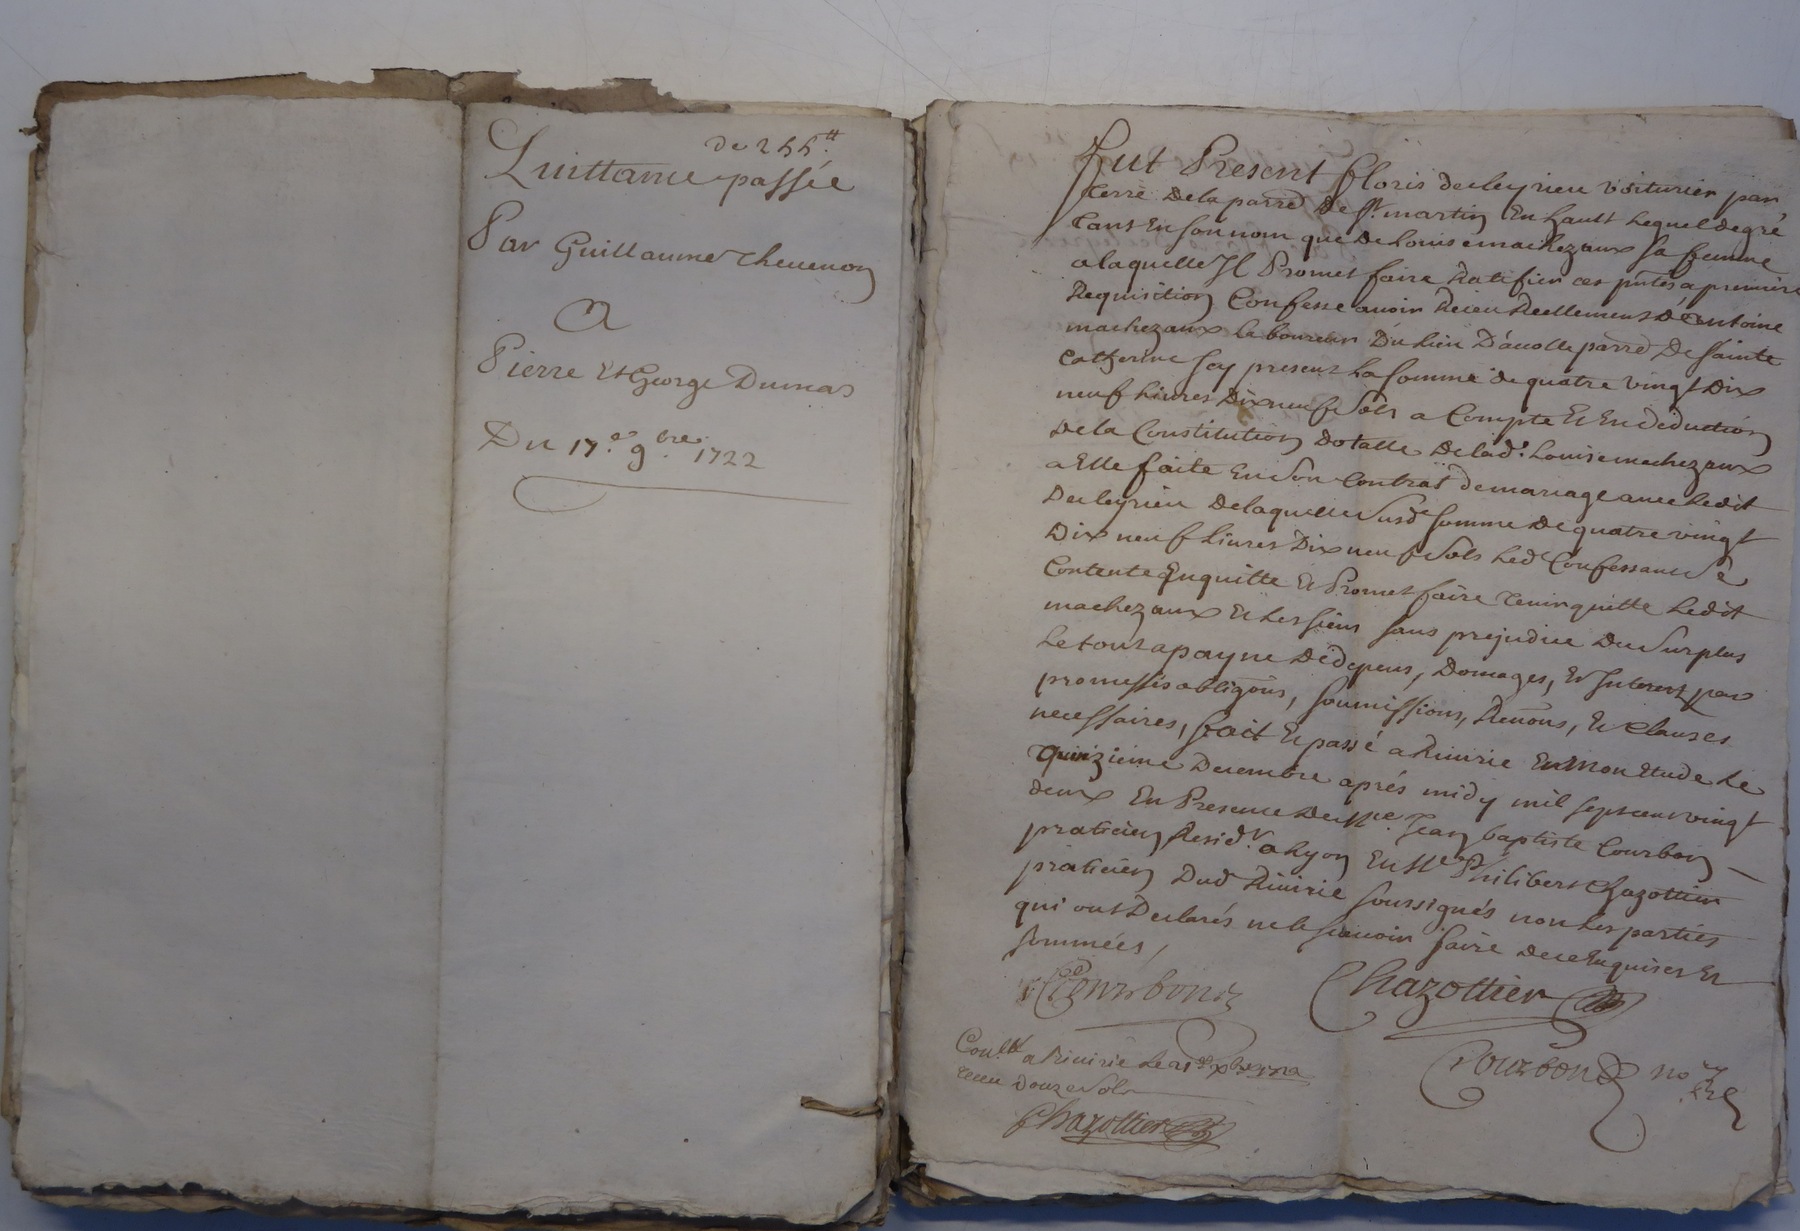 de 255ᵗᵗ
Quittance passée
Par Guillaume Thevenon
A
Pierre Et George Dumas
Du 17.e 9.bre 1722
Fut Present floris deleyrieu voiturier par
terre De la parre De St. martin En hault Lequel de gré
Tant En son nom que De Louise machezaux sa femme
a laquelle Il Promet faire Ratifier ces pntes a premiere
Requisition Confesse avoir Receu Reellement D'Antoine
machezaux Laboureur Du Lieu D'avolle parre De sainte
Catherine Icy present La somme de quatre vingt Dix
neuf Livres Dix neuf Sols a Compte Et En deduction
De la Constitution Dotalle De lad.e Louise machezaux
a Elle faite En Son Contrat de mariage avec Ledit
Deleyrieu De laquelle Susde somme De quatre vingt
Dix neuf Livres Dix neuf Sols Led Confessant Se
Contente Enquitte Et Promet faire tenir quitte Ledit
machezaux Et Les siens sans prejudice Du Surplus
Le tout a payne De depens, Domages, Et Interest par
promesses obligons, soumissions, Renons, Et Clauses
necessaires, ffait Et passé a Riuirie En Mon Etude Le
Quinzieme Decembre aprés midy mil sept cent vingt
deux En Presence De Me. Jean baptiste Courbon
praticien Resid.t a Lyon Et Me Philibert Chazottier
praticien Dud Riuirie soussignés non Les parties
qui ont Declarés ne le scauoir faire De ce Enquises Et
sommées,
Courbon
Chazottier
Courbon nore
Conllé a Riuirie Le 21e xbre 1722
receu Douze Sols
Chazottier